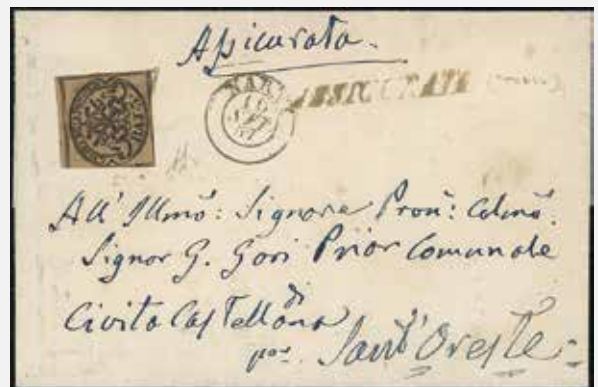 Assicurata.
NARNI
10
SETT
57
ASSICURATA
All' Illmõ: Signore Pron̄: Colmõ.
Signor G. Gori Prior Comunale
di
Civita Castellana
per Sant'Oreste